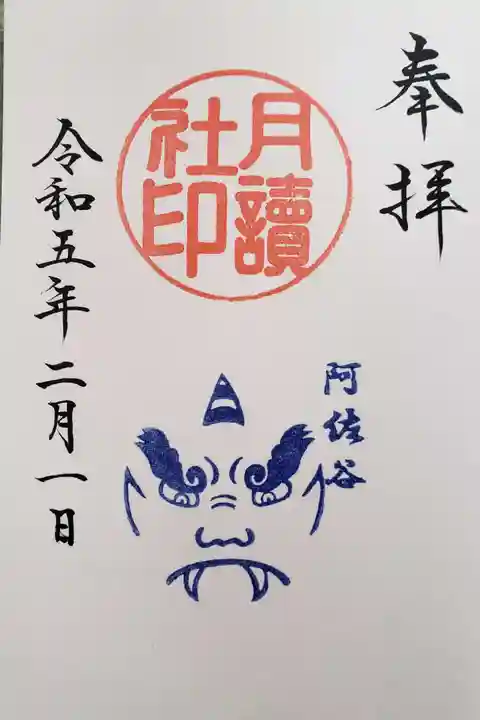 奉拝
月讀
社印
阿佐谷
令和五年二月一日